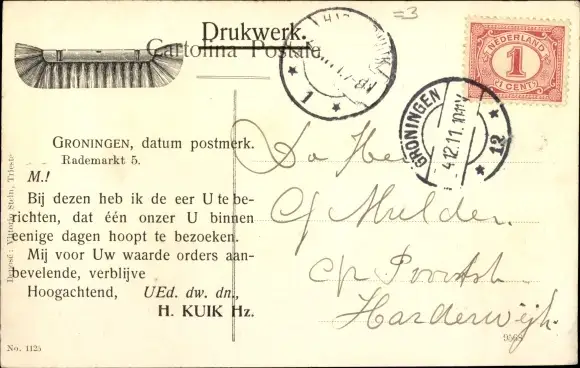 Drukwerk.
Cartolina Postale
=3
NEDERLAND
1
1
(1 CENT)
GRONINGEN
4.12.11.
12
1
GRONINGEN, datum postmerk.
Rademarkt 5.
M.!
Bij dezen heb ik de eer U te be-
richten, dat één onzer U binnen
eenige dagen hoopt te bezoeken.
Mij voor Uw waarde orders aan-
bevelende, verblijve
Hoogachtend, UEd. dw. dn.,
H. KUIK Hz.
Vittorio Stein, Trieste
Mulden
Harderwijk.
No. 1125
9568